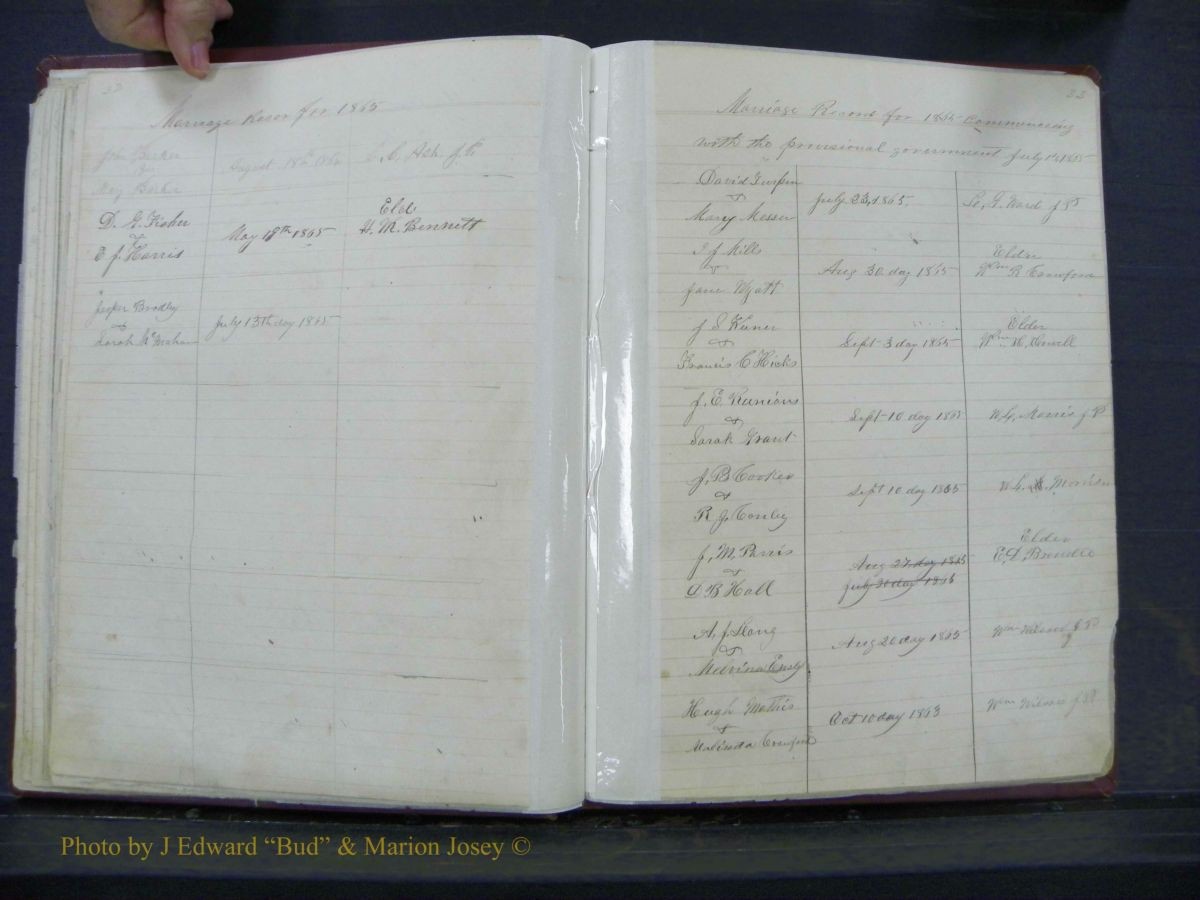 33
Marriage Recor for 1865
John Barker
&
Mary Barker
August 18th 1864
J. P.
D. G. Fisher
&
E J. Harris
May 18th 1865
Eld
H. M. Bennett
Jasper Bradley
&
Sarah
July 13th day 1865
33
Marriage Record for 1865 commencing
with the provisional government July 1st 1865
David Turpin
&
Mary Messer
July 23, 1865
G. Ward J P
J J Mills
&
Jane Wyatt
Aug 30 day 1865
Elder
Wm R
J S
&
Francis C Hicks
Sept 3 day 1865
Elder
Wm H.
J. E. Runions
&
Sarah Grant
Sept 10 day 1865
Morris J P
J. B.
&
R J. Conley
Sept 10 day 1865
J. M. Parris
&
D B Hall
Aug 27 day 1865
July 30 day 1865
Elder
E. D. Brendle
A. J. Long
&
Melvina Ensly
Aug 20 day 1865
Wm Wilson J P
Hugh Mathis
&
Malinda Crawford
Oct 10 day 1863
Wm Wilson J P
Photo by J Edward “Bud” & Marion Josey ©